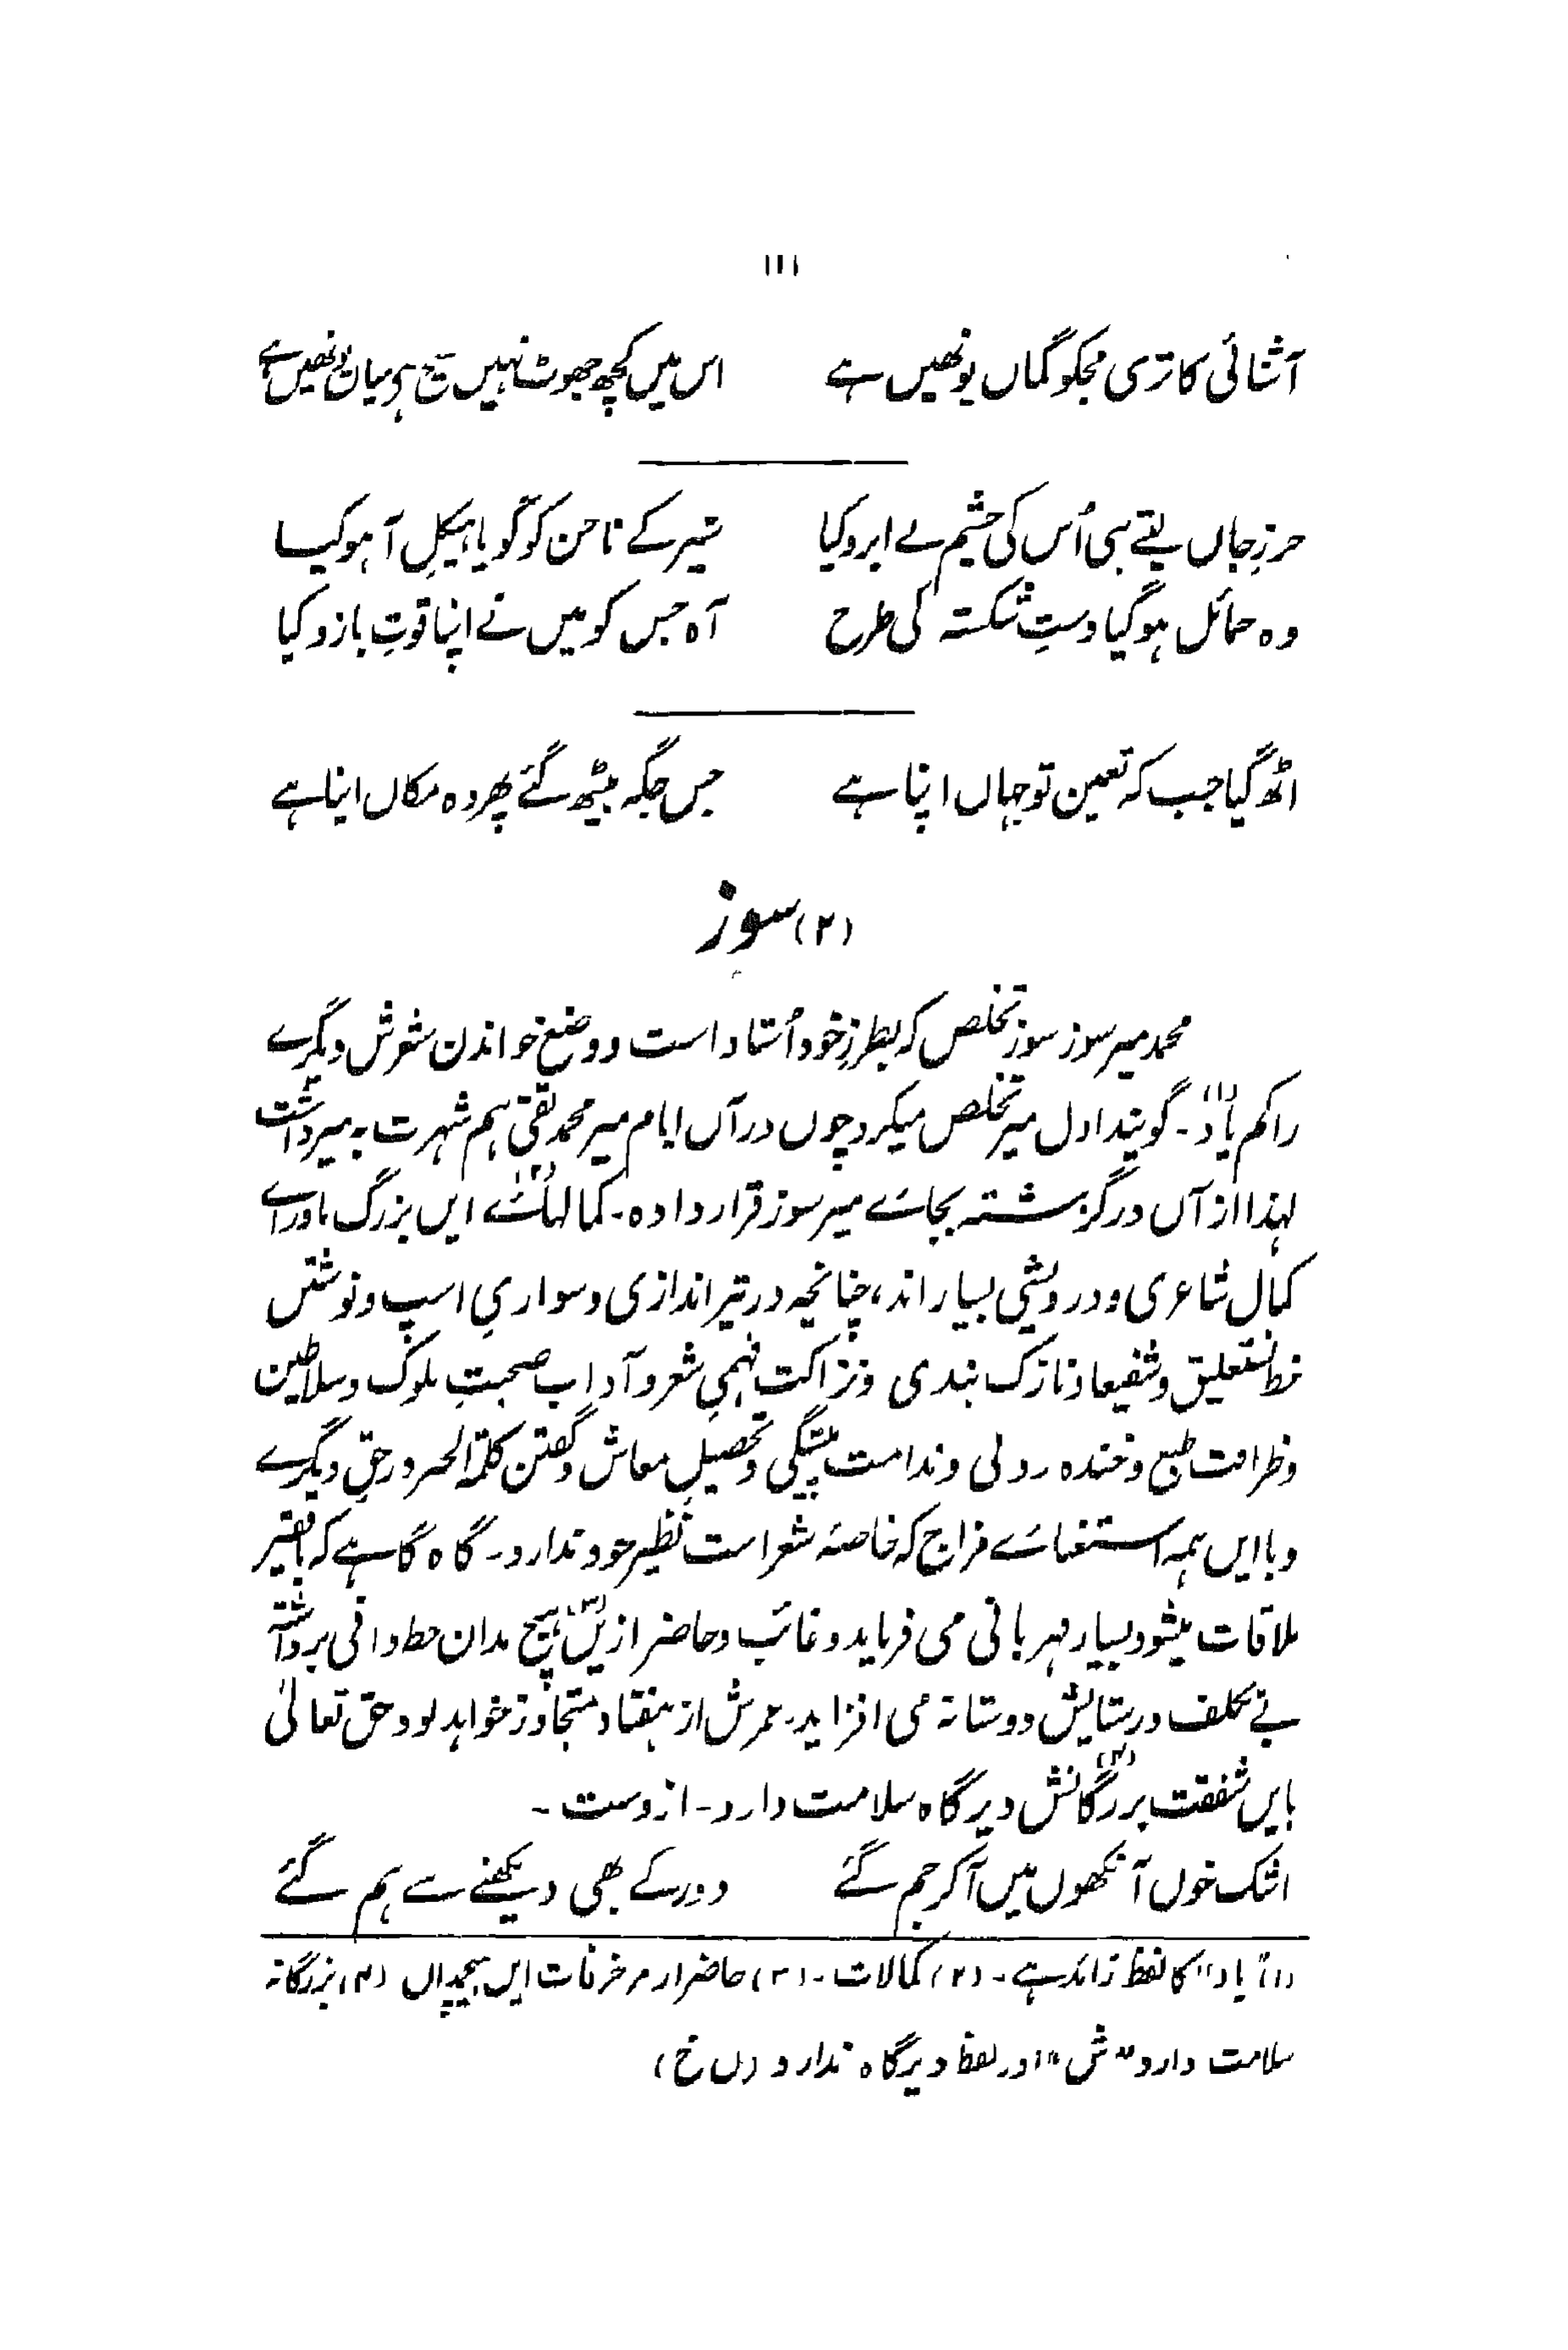 ۱۱۱
آشنائی کا تری مجکو گماں یونہیں ہے اس میں کچھ جھوٹ نہیں سچ ہے میاں یونہیں ہے
حرزِ جاں یتے ہی اُس کی چشم نے ابرو کیا شیر کے ناخن کو گویا ہیکلِ آہو کیا
وہ حمائل ہوگیا دستِ شکستہ کی طرح آہ جس کو میں نے اپنا قوتِ بازو کیا
اٹھ گیا جب کہ تعین تو جہاں اپنا ہے جس جگہ بیٹھ گئے پھر وہ مکاں اپنا ہے
(۲) سوز
محمد میر سوز سوز تخلص کہ بطرزِ خود اُستاد است و وضع خواندن شعرش دیگرے
را کم یاد (۱)۔ گویند اول میر تخلص میکرد چوں در آں ایام میر محمد تقی ہم شہرت بہ میر داشت
لہذا از آں درگزشتہ بجائے میر سوز قرار دادہ۔ کمالہائے (۲) ایں بزرگ ماورائے
کمال شاعری و درویشی بسیار اند، چنانچہ در تیر اندازی و سواریِ اسپ و نوشتن
خط نستعلیق و شفیعا و نازک بندی و نزاکت فہمیِ شعر و آدابِ صحبتِ ملوک و سلاطین
و ظرافت طبع و خندہ روئی و ندامت پیشگی و تحصیلِ معاش و گفتن کلمۃ الخیر در حقِ دیگرے
و با ایں ہمہ استغنائے مزاج کہ خاصۂ شعر است نظیر خود ندارد۔ گاہ گاہے کہ با فقیر
ملاقات میشود بسیار مہربانی می فرماید و غائب و حاضر ازیں (۳) ہیچ مدان حظ وافی برداشتہ
بے تکلف در ستایش دوستانہ می افزاید۔ عمرش از ہفتاد متجاوز خواہد بود حق تعالیٰ
بایں شفقت بزرگانش (۴) دیر گاہ سلامت دارد۔ از وست۔
اشک خوں آنکھوں میں آکر جم گئے دور کے بھی دیکھنے سے ہم گئے
(۱) "یاد" کا لفظ زائد ہے۔ (۲) کمالات۔ (۳) حاضر از مزخرفات ایں ہیچمداں (۴) بزرگانہ
سلامت دارد "ش" اور لفظ دیرگاہ ندارد (ل خ)